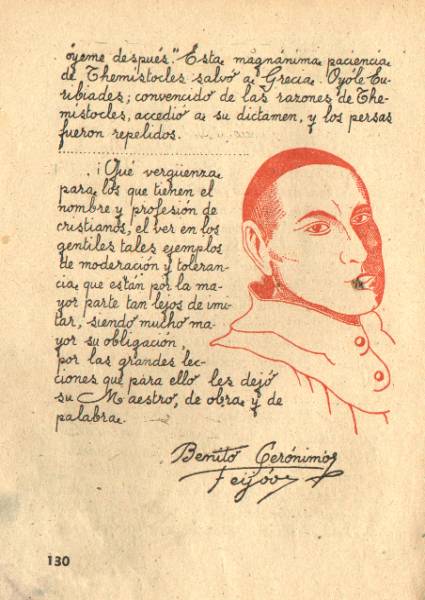 óyeme después." Esta magnánima paciencia
de Themistocles salvó a Grecia. Oyóle Eu-
ribiades; convencido de las razones de The-
místocles, accedió a su dictamen, y los persas
fueron repelidos.
¡Qué vergüenza
para los que tienen el
nombre y profesión de
cristianos, el ver en los
gentiles tales ejemplos
de moderación y toleran-
cia que están por la ma-
yor parte tan lejos de imi-
tar, siendo mucho ma-
yor su obligación,
por las grandes lec-
ciones que para ello les dejó
su Maestro, de obra y de
palabra.
Benito Gerónimo
Feijóo
130